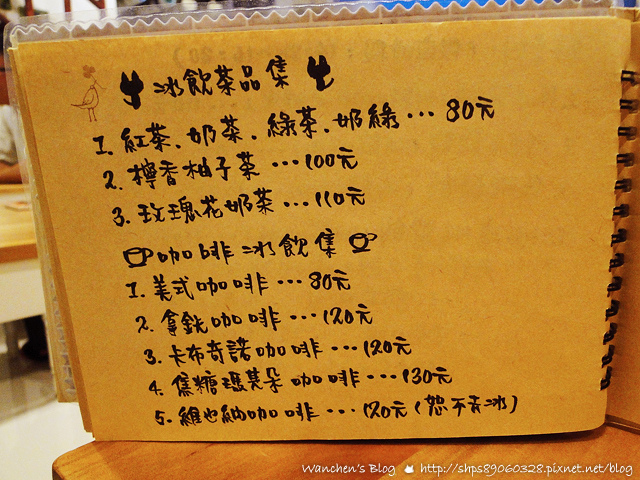 冰飲茶品集
1. 紅茶、奶茶、綠茶、奶綠… 80元
2. 檸香柚子茶 …100元
3. 玫瑰花奶茶 …110元
咖啡冰飲集
1. 美式咖啡 … 80元
2. 拿鉄咖啡 … 120元
3. 卡布奇諾咖啡 … 120元
4. 焦糖瑪其朵咖啡 … 130元
5. 維也納咖啡 … 120元 (恕不去冰)
Wanchen's Blog http://shps89060328.pixnet.net/blog